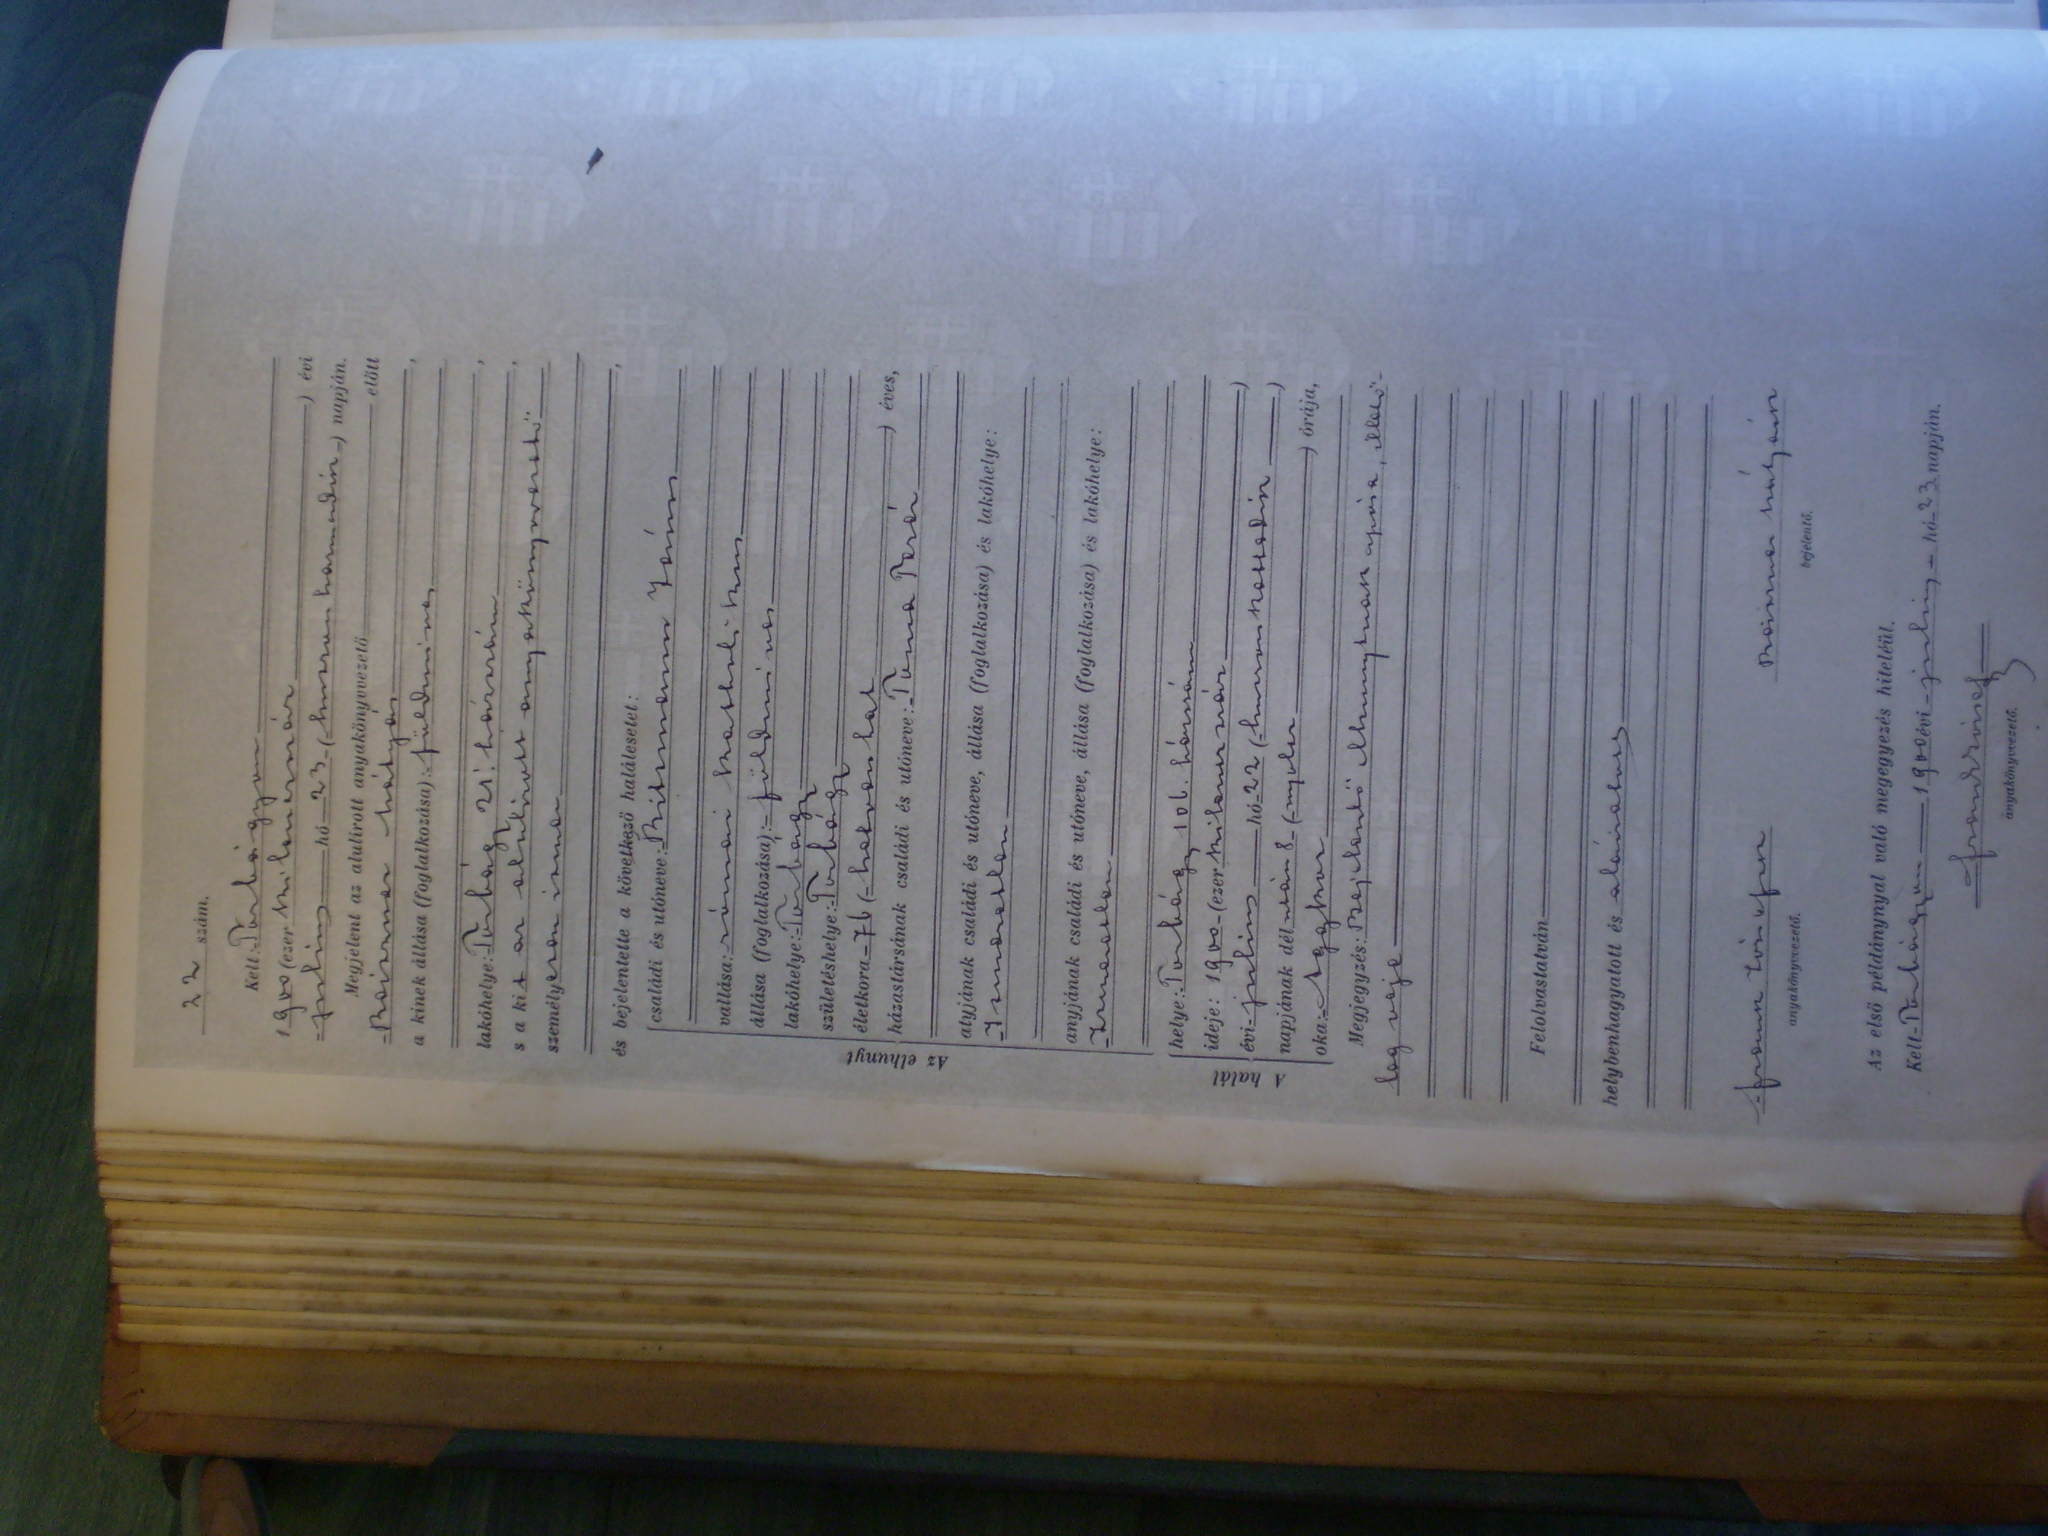 22 szám.
Kelt: Torbágyon
1900 (ezerkilencszáz) évi
julius hó 23 (huszonharmadik) napján.
Megjelent az alulirott anyakönyvvezető előtt
Mátyás
a kinek állása (foglalkozása): földmives,
lakóhelye: Torbágy 21. házszám,
s a kit az alulirott anyakönyvvezető
személyesen ismer
és bejelentette a következő halálesetet:
Az elhunyt
családi és utóneve: János
vallása: római katholikus
állása (foglalkozása): földmives
lakóhelye: Torbágy
születéshelye: Torbágy
életkora 76 (hetvenhat) éves,
házastársának családi és utóneve: Teréz
atyjának családi és utóneve, állása (foglalkozása) és lakóhelye:
Ismeretlen
anyjának családi és utóneve, állása (foglalkozása) és lakóhelye:
Ismeretlen
A halál
helye: Torbágy, 106. házszám
ideje: 1900 (ezerkilencszáz)
évi julius hó 22 (huszonkettedik)
napjának délután 8 (nyolcz) órája,
oka: Aggkor
Megjegyzés: Bejelentő elhunytnak apósa, illető-
leg veje
Felolvastatván
helybenhagyatott és aláiratott
József Mátyás
anyakönyvvezető. bejelentő.
Az első példánynyal való megegyezés hiteléül.
Kelt Torbágyon 1900 évi julius hó 23 napján.
József
anyakönyvvezető.